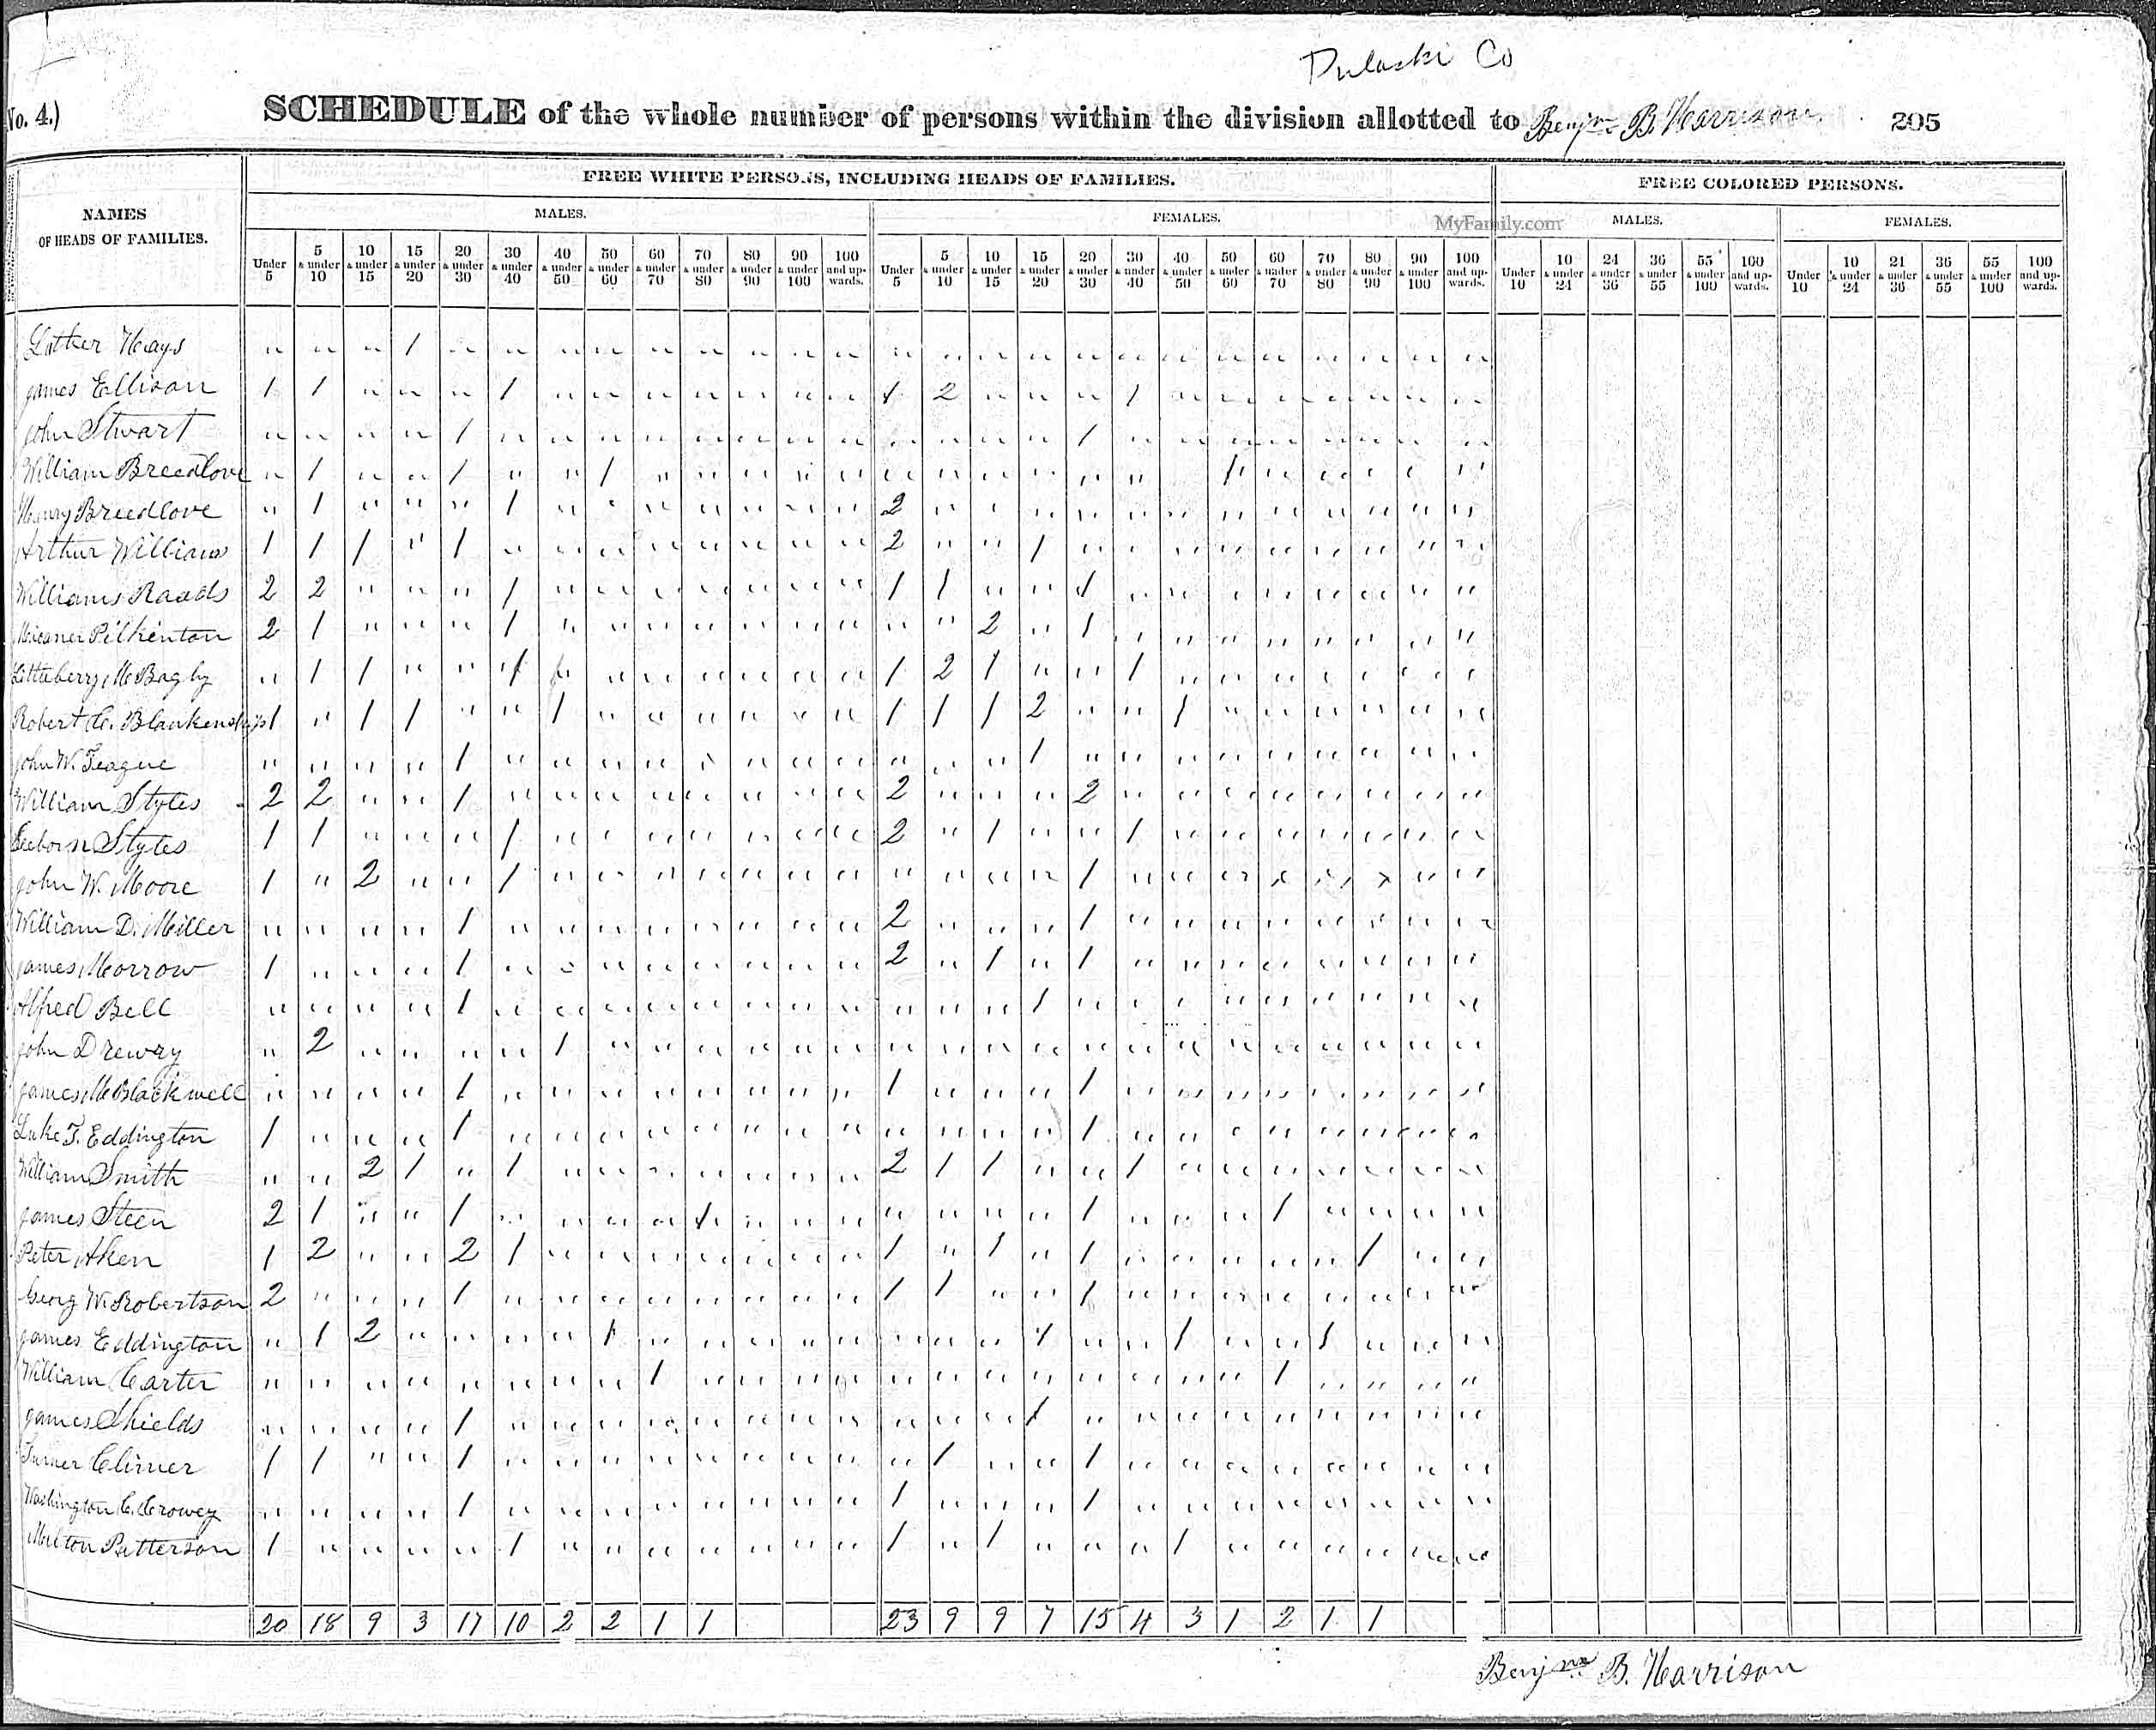 Pulaski Co
No. 4.) SCHEDULE of the whole number of persons within the division allotted to Benjm B. Harrison 205
FREE WHITE PERSONS, INCLUDING HEADS OF FAMILIES. FREE COLORED PERSONS.
NAMES OF HEADS OF FAMILIES. MALES. FEMALES. MyFamily.com MALES. FEMALES.
Under 5 5 & under 10 10 & under 15 15 & under 20 20 & under 30 30 & under 40 40 & under 50 50 & under 60 60 & under 70 70 & under 80 80 & under 90 90 & under 100 100 and upwards. Under 5 5 & under 10 10 & under 15 15 & under 20 20 & under 30 30 & under 40 40 & under 50 50 & under 60 60 & under 70 70 & under 80 80 & under 90 90 & under 100 100 and upwards. Under 10 10 & under 24 24 & under 36 36 & under 55 55 & under 100 100 and upwards. Under 10 10 & under 24 24 & under 36 36 & under 55 55 & under 100 100 and upwards.
Luther Hays 1
James Ellison 1 1 1 1 2 1
John Stwart 1 1
William Breedlove 1 1 1 1
Henry Breedlove 1 1 2
Arthur Williams 1 1 1 1 2 1
Williams Raads 2 2 1 1 1 1
Pilkenton 2 1 1 2 1
Littleberry M Bagby 1 1 1 1 2 1 1
Robert C. Blankenship 1 1 1 1 1 1 1 2 1
John W. Teague 1 1
William Styles 2 2 1 2 2
Styles 1 1 1 2 1 1
John W. Moore 1 2 1 1
William D. Miller 1 2 1
James Morrow 1 1 2 1 1
Alfred Bell 1 1
John Drewry 2 1
James M Blackwell 1 1 1
Luke T. Eddington 1 1 1
William Smith 2 1 1 2 1 1 1
James Steen 2 1 1 1 1 1
Peter Aken 1 2 2 1 1 1 1 1
Georg W. Robertson 2 1 1 1 1
James Eddington 1 2 1 1 1 1
William Carter 1 1
James Shields 1 1
Turner Climer 1 1 1 1 1
Washington C. Crowey 1 1 1
Milton Patterson 1 1 1 1 1
20 18 9 3 17 10 2 2 1 1 23 9 9 7 15 4 3 1 2 1 1
Benjm B. Harrison